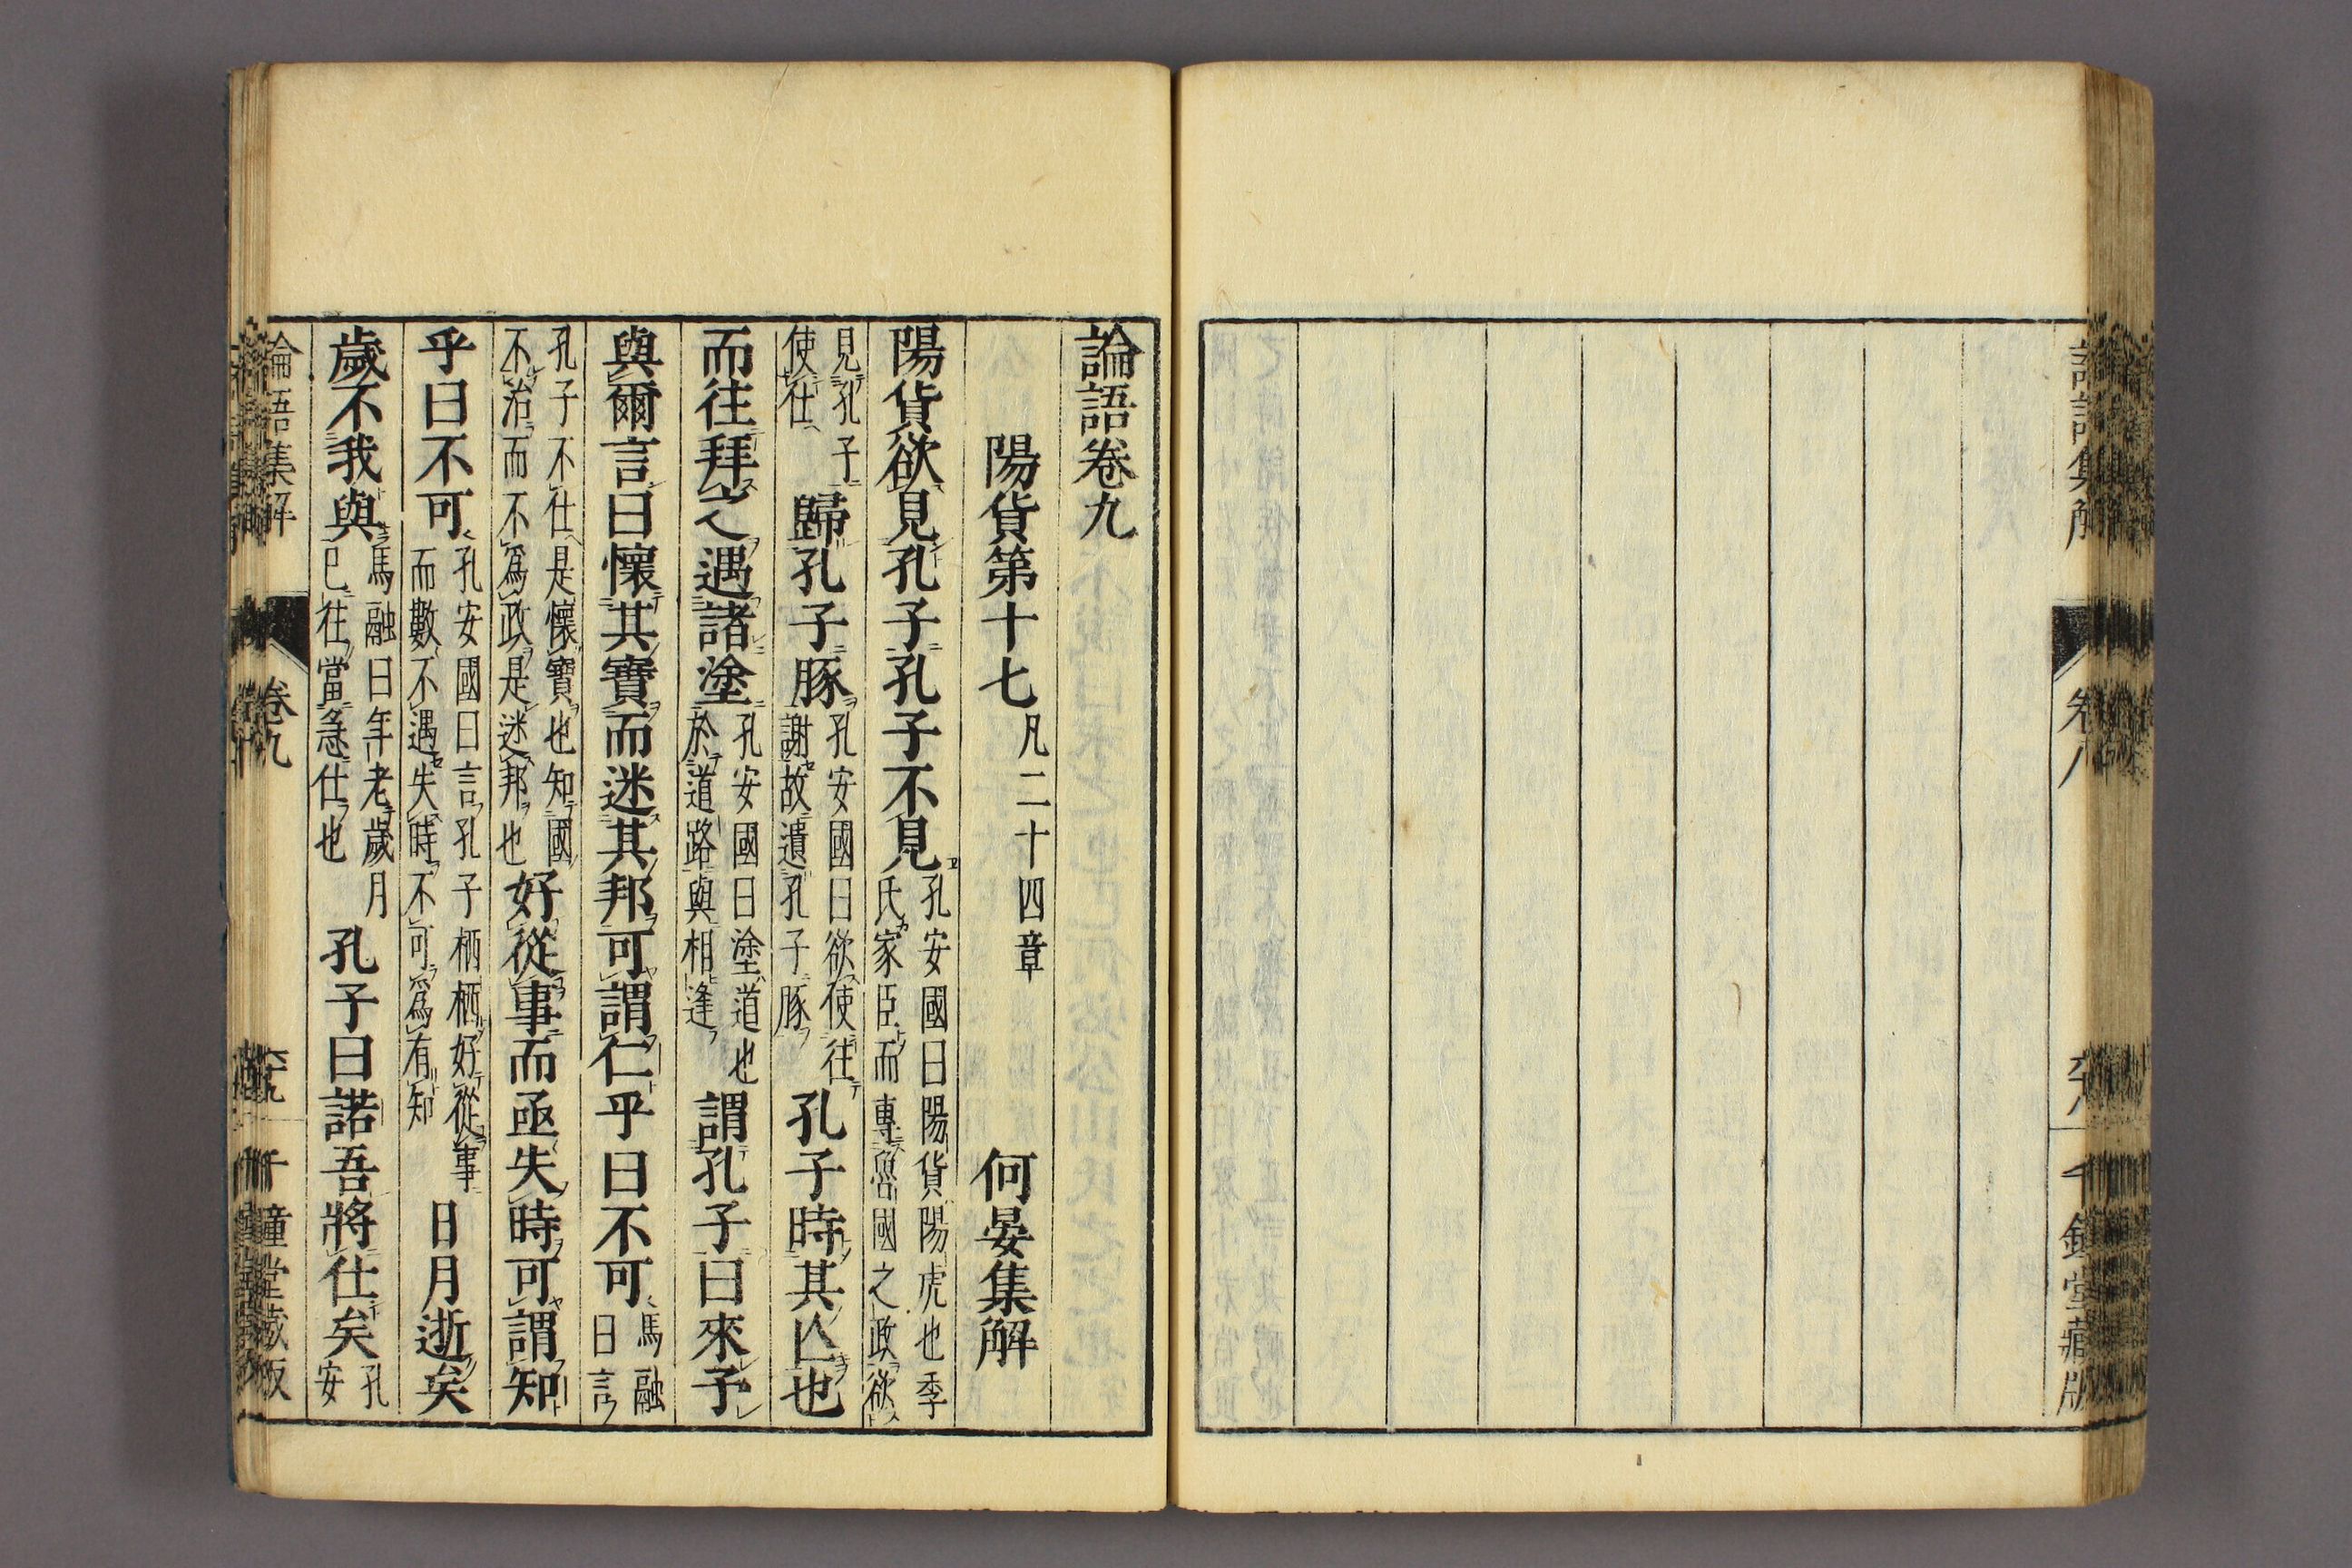 論語卷九
陽貨第十七 凡二十四章 何晏集解
陽貨欲見孔子孔子不見 孔安國曰陽貨陽虎也季
氏家臣而專魯國之政欲
見孔子
使仕 歸孔子豚 孔安國曰欲使往
謝故遺孔子豚 孔子時其亾也
而往拜之遇諸塗 孔安國曰塗道也
於道路與相逢 謂孔子曰來予
與爾言曰懷其寶而迷其邦可謂仁乎曰不可 馬融
曰言
孔子不仕是懷寶也知國
不治而不爲政是迷邦也 好從事而亟失時可謂知
乎曰不可 孔安國曰言孔子栖栖好從事
而數不遇失時不可爲有知 日月逝矣
歲不我與 馬融曰年老歲月
已往當急仕也 孔子曰諾吾將仕矣 孔
安
論語集解 卷九 千鍾堂藏版
卷八 千鍾堂藏版